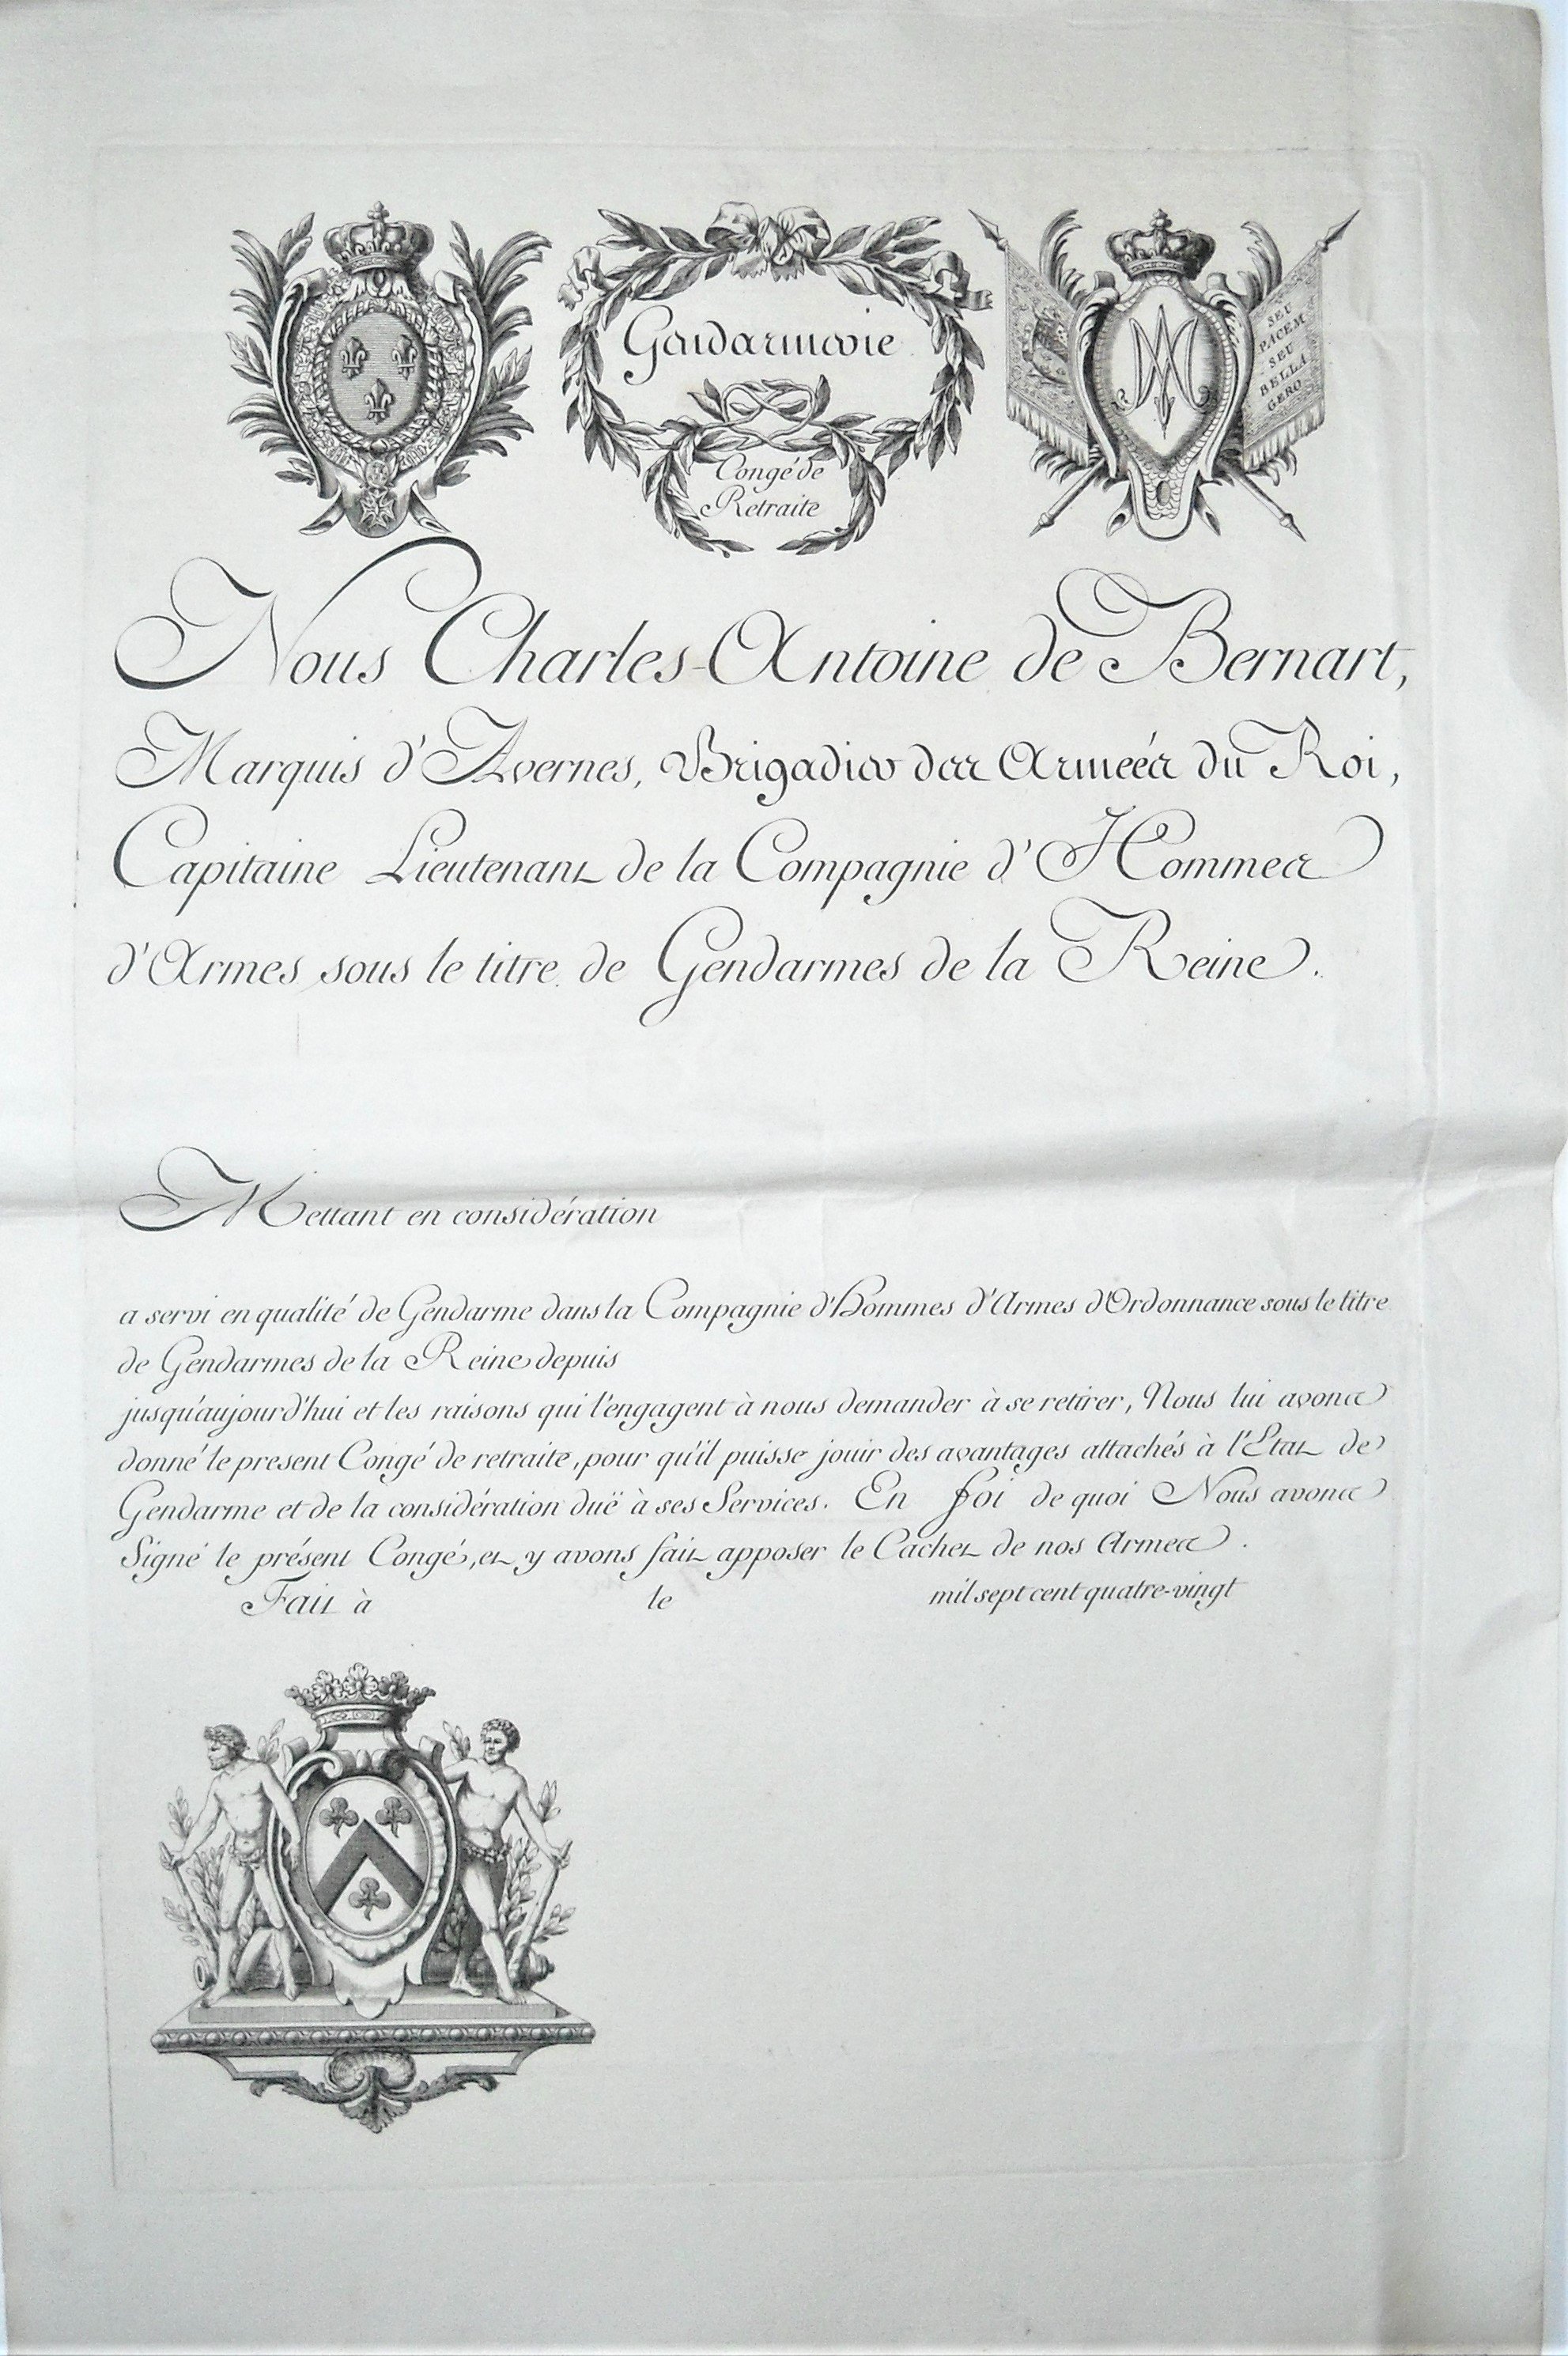 Gendarmerie
Congé de
Retraite
SEU
PACEM
SEU
BELLA
GERO
Nous Charles-Antoine de Bernart,
Marquis d'Avernes, Brigadier des Armées du Roi,
Capitaine Lieutenant de la Compagnie d'Hommes
d'Armes sous le titre de Gendarmes de la Reine.
Mettant en considération
a servi en qualité de Gendarme dans la Compagnie d'Hommes d'Armes d'Ordonnance sous le titre
de Gendarmes de la Reine depuis
jusqu'aujourd'hui et les raisons qui l'engagent à nous demander à se retirer, Nous lui avons
donné le present Congé de retraite, pour qu'il puisse jouir des avantages attachés à l'Etat de
Gendarme et de la considération duë à ses Services. En foi de quoi Nous avons
Signé le présent Congé, et y avons fait apposer le Cachet de nos Armes.
Fait à le mil sept cent quatre-vingt